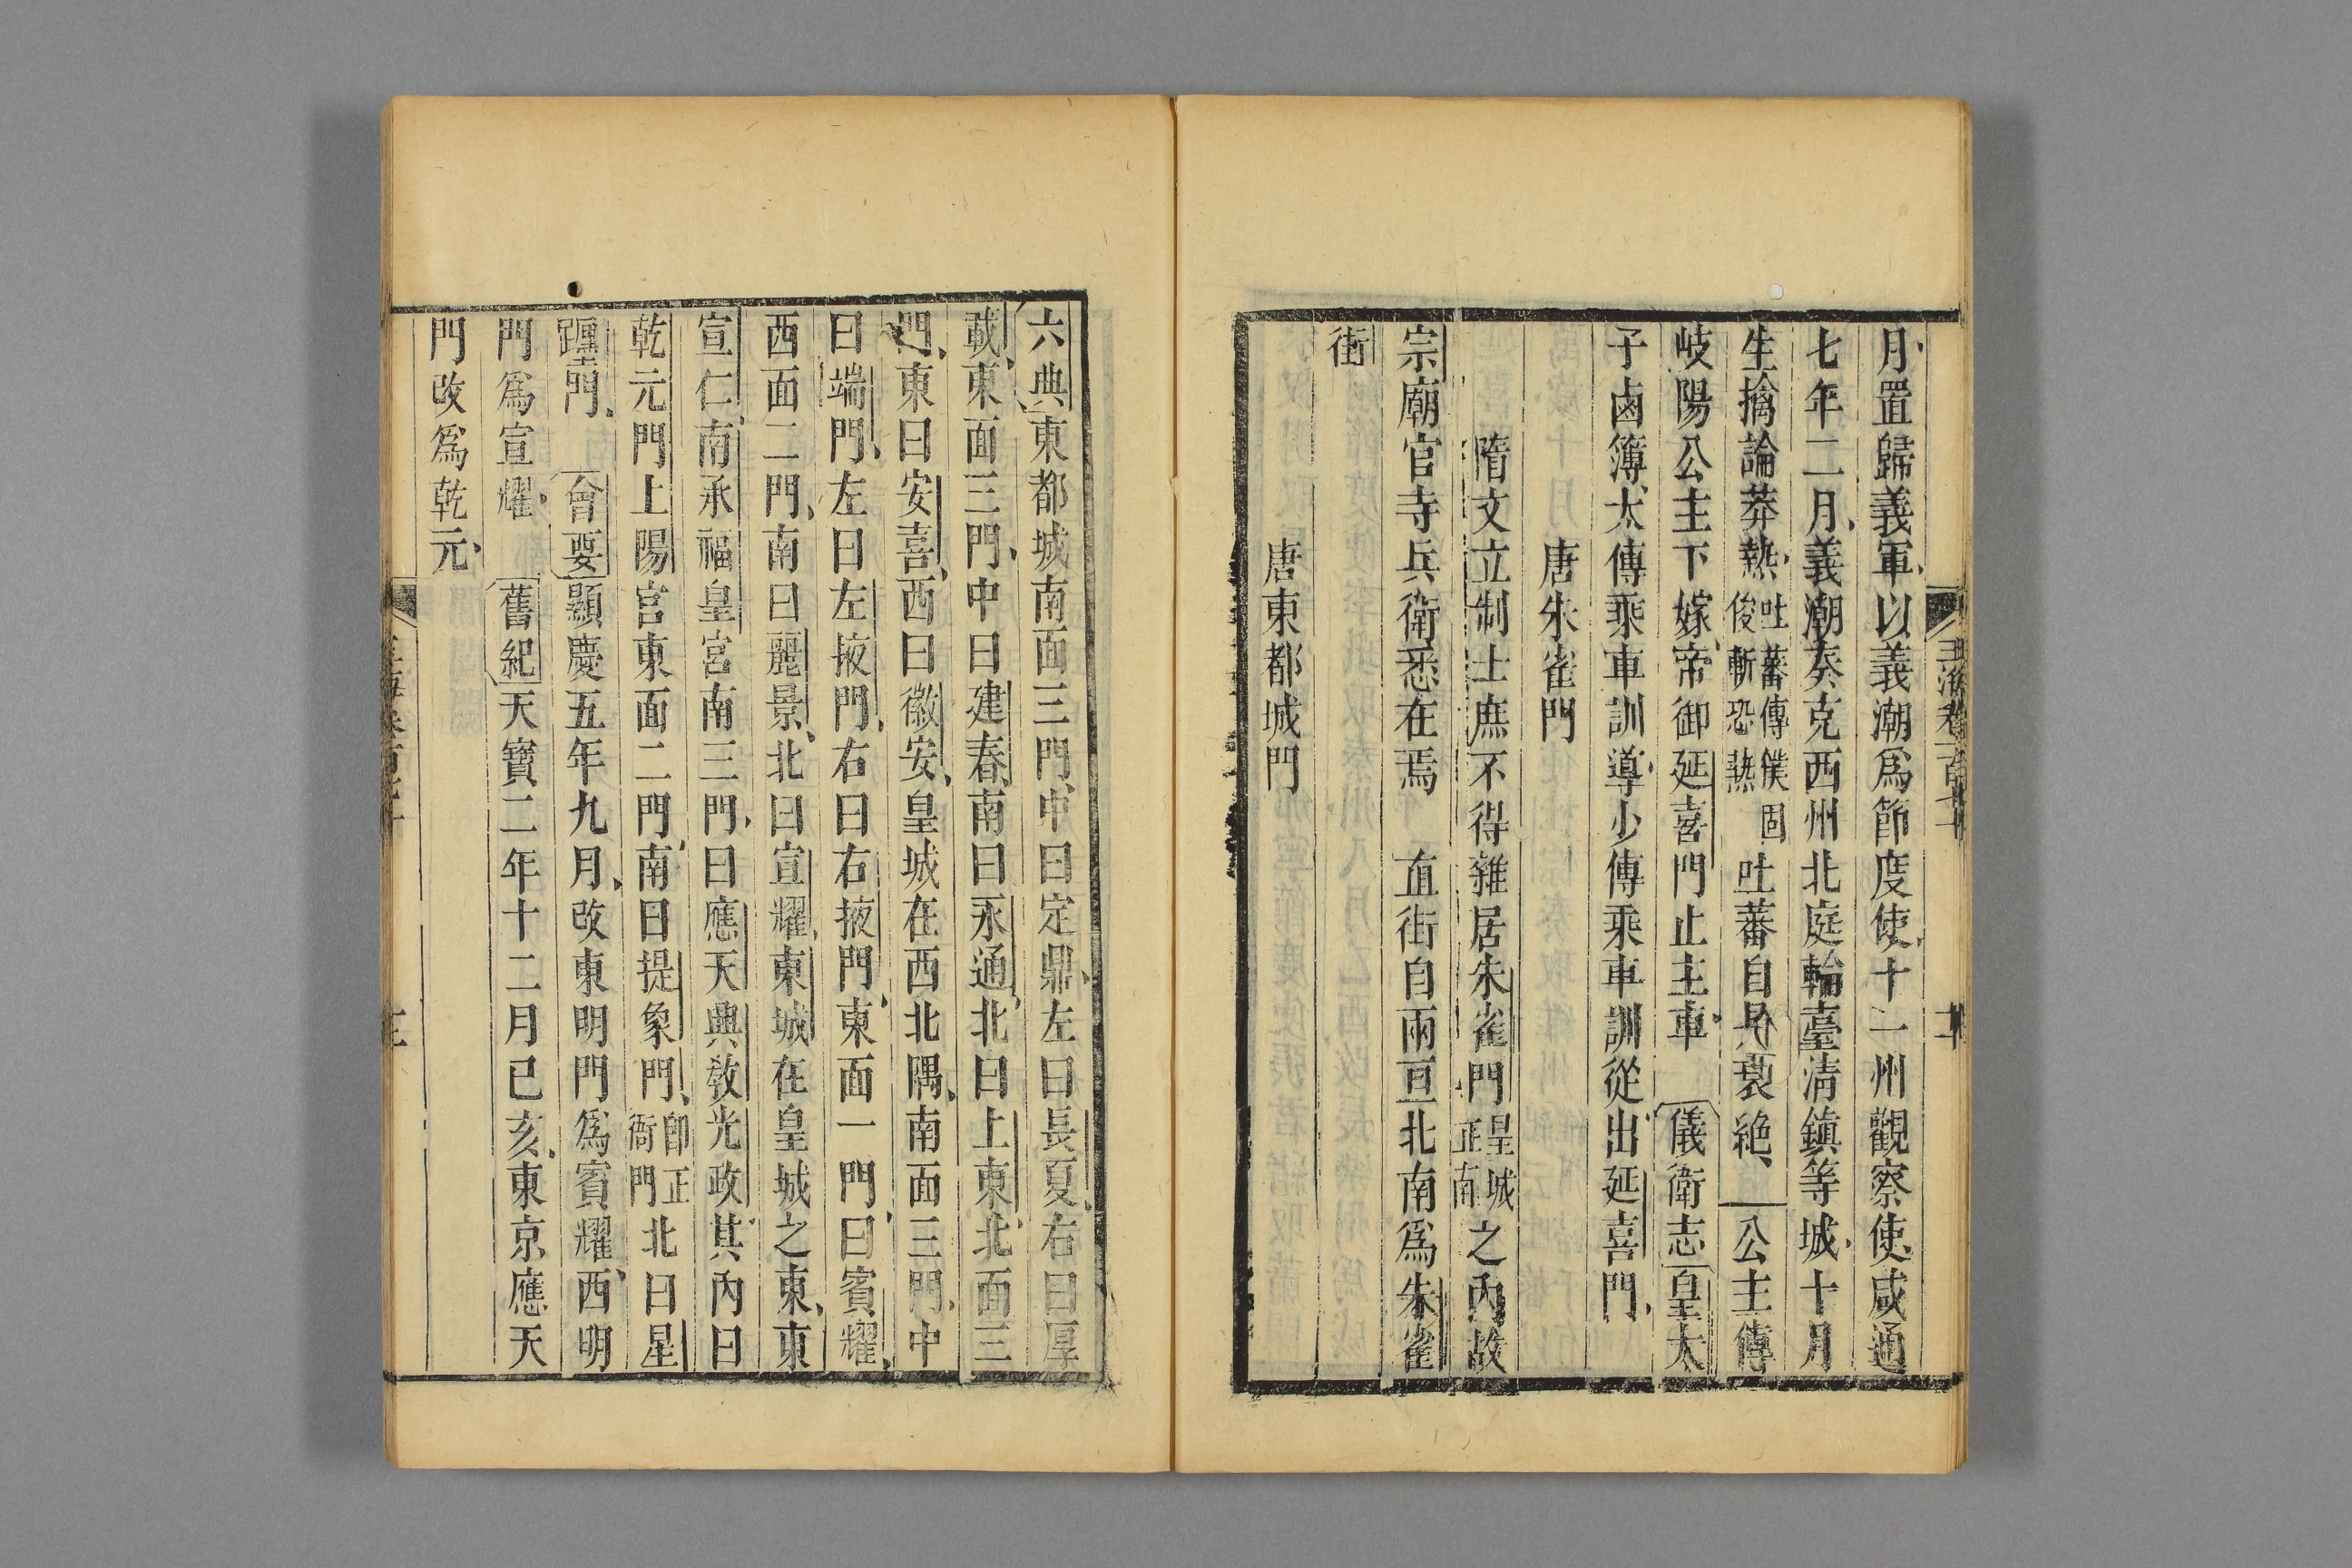 月置歸義軍以義潮爲節度使十一州觀察使咸通
七年二月義潮奏克西州北庭輪臺清鎮等城十月
生擒論莽熱吐蕃傳僕固俊斬恐熱吐蕃自是衰絶公主傳
岐陽公主下嫁帝御延喜門止主車儀衛志皇太
子鹵簿太傅乘車訓導少傅乘車訓從出延喜門
唐朱雀門
隋文立制士庶不得雜居朱雀門皇城正南之內故
宗廟官寺兵衛悉在焉 直街自兩亘北南爲朱雀
街
唐東都城門
六典東都城南面三門中曰定鼎左曰長夏右曰厚
載東面三門中曰建春南曰永通北曰上東北面三
門東曰安喜西曰徽安皇城在西北隅南面三門中
曰端門左曰左掖門右曰右掖門東面一門曰賓耀
西面二門南曰麗景北曰宣耀東城在皇城之東東
宣仁南承福皇宮南三門曰應天興敎光政其內曰
乾元門上陽宮東面二門南曰提象門卽正衙門北曰星
躔門 會要顯慶五年九月改東明門爲賓耀西明
門爲宣耀 舊紀天寶二年十二月已亥東京應天
門改爲乾元